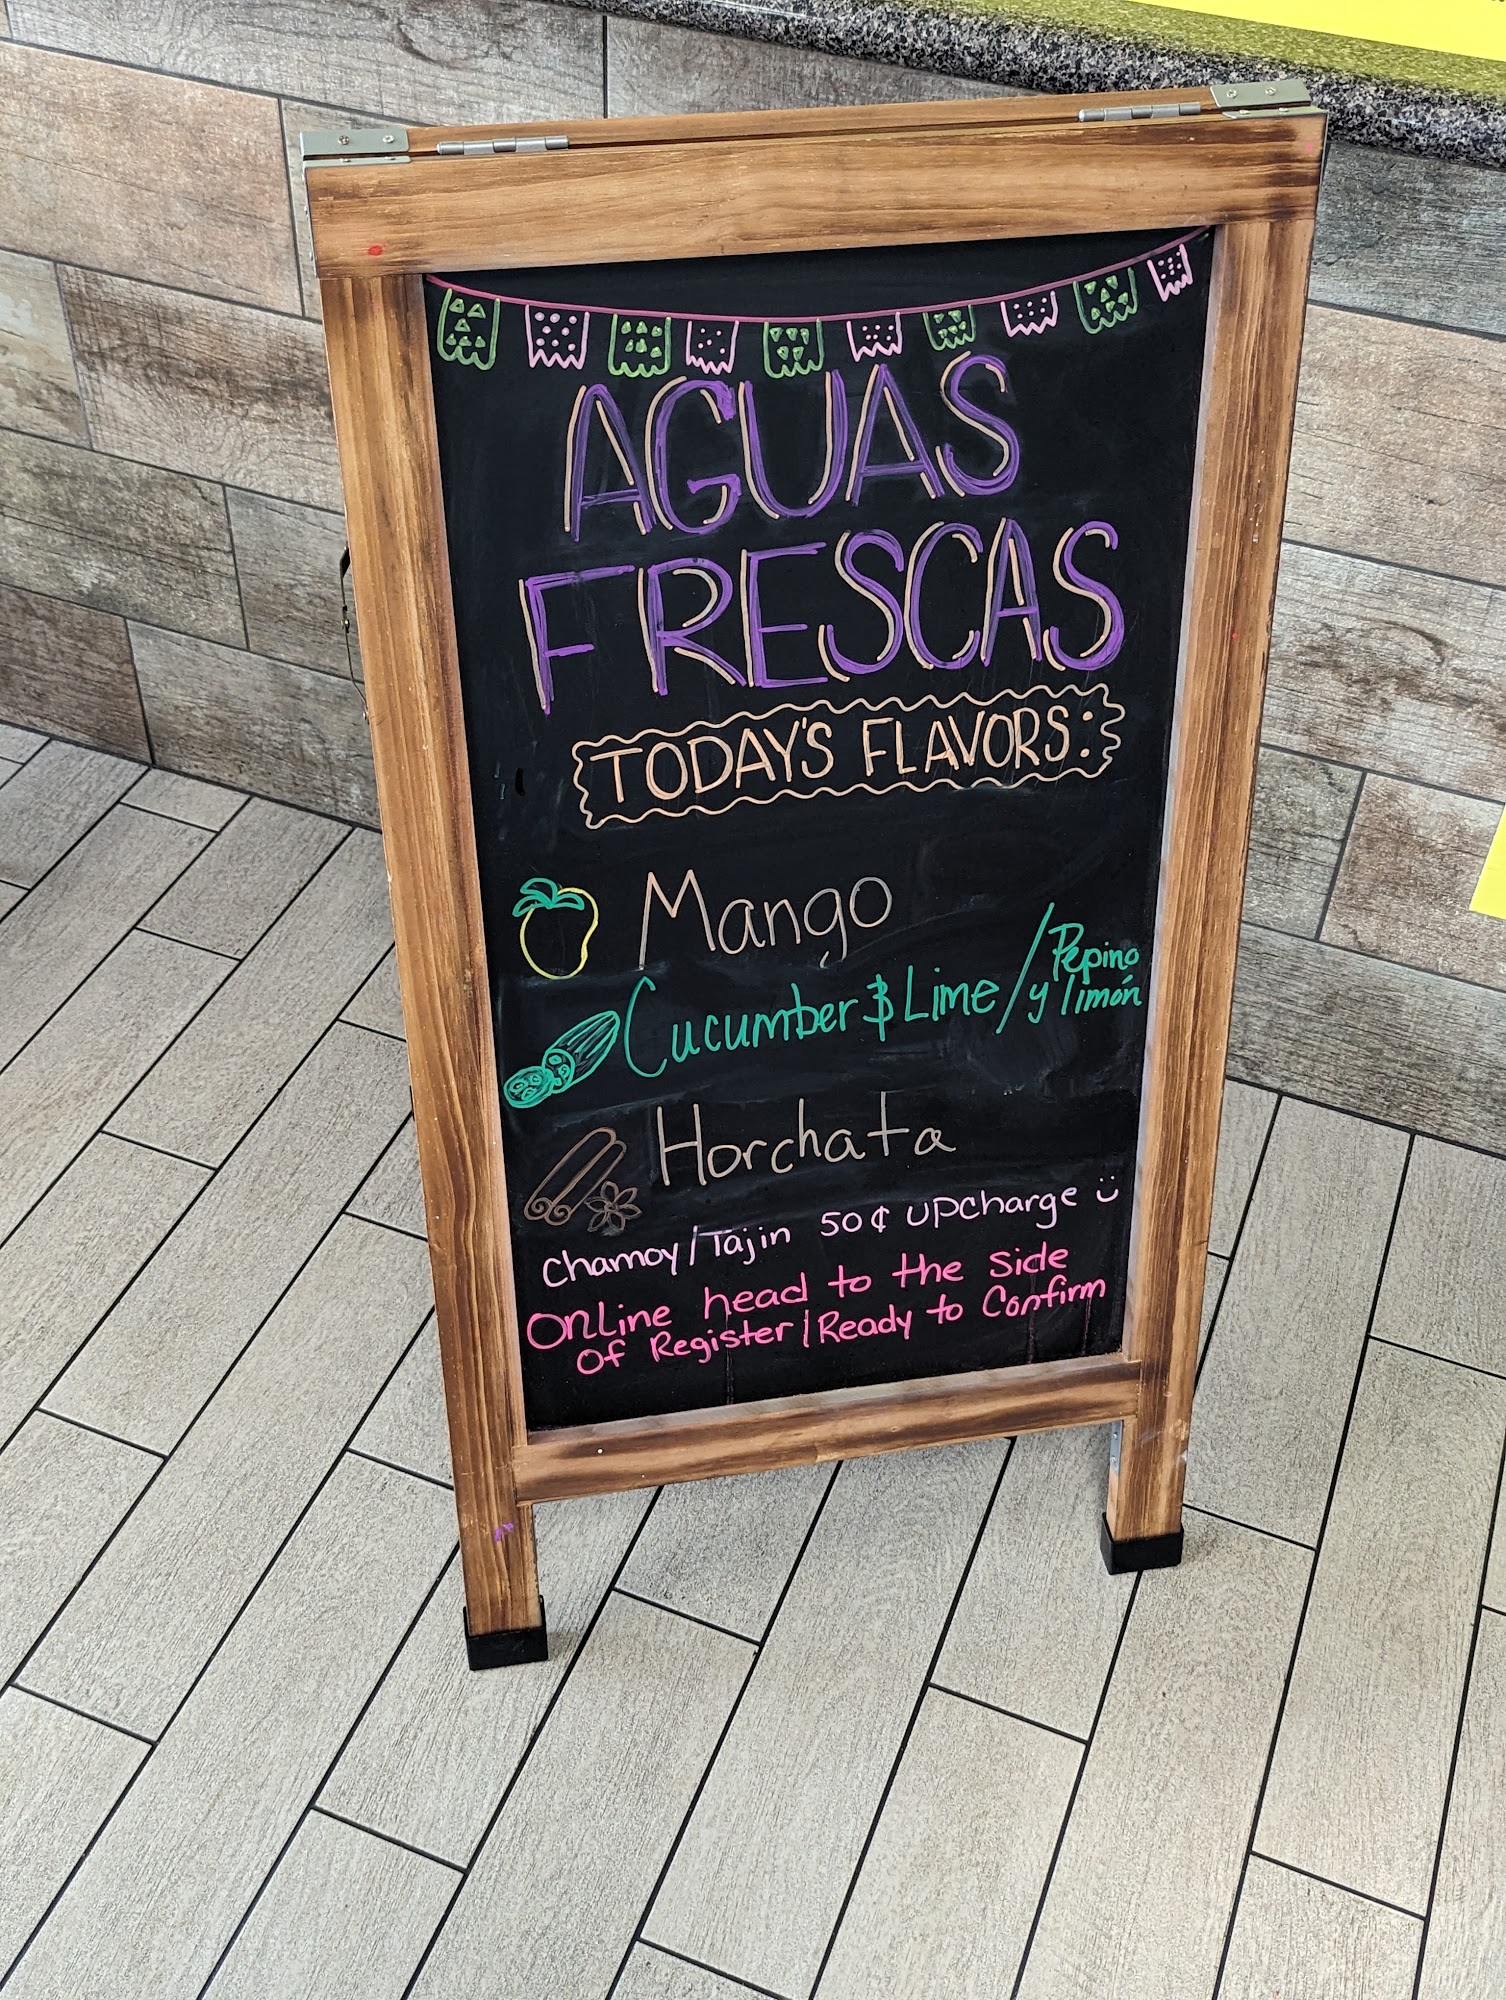 AGUAS
FRESCAS
TODAY'S FLAVORS:
Mango
Cucumber & Lime / Pepino
y limón
Horchata
Chamoy/Tajin 50¢ upcharge
Online head to the side
of Register / Ready to Confirm